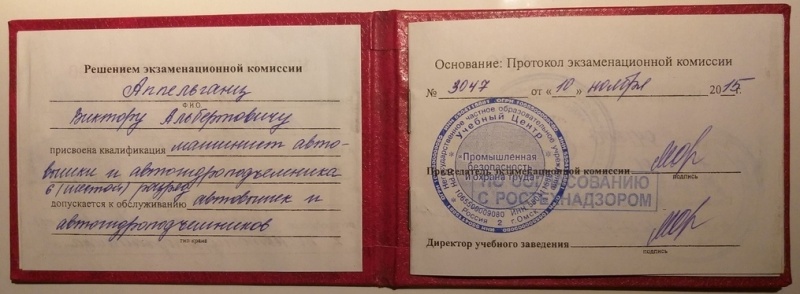 Решением экзаменационной комиссии
Аппельганц
Ф.И.О.
Виктору Альбертовичу
присвоена квалификация машинист авто-
вышки и автогидроподъемника
6 (шестой) разряд
допускается к обслуживанию автовышек и
автогидроподъемников
тип крана
Основание: Протокол экзаменационной комиссии
№ 3047 от «10» ноября 2015г.
Негосударственное частное образовательное учреждение
Учебный Центр
"Промышленная
безопасность
и охрана труда"
Россия г.Омск
Председатель экзаменационной комиссии
подпись
ПО СОГЛАСОВАНИЮ
С РОСТЕХНАДЗОРОМ
Директор учебного заведения
подпись